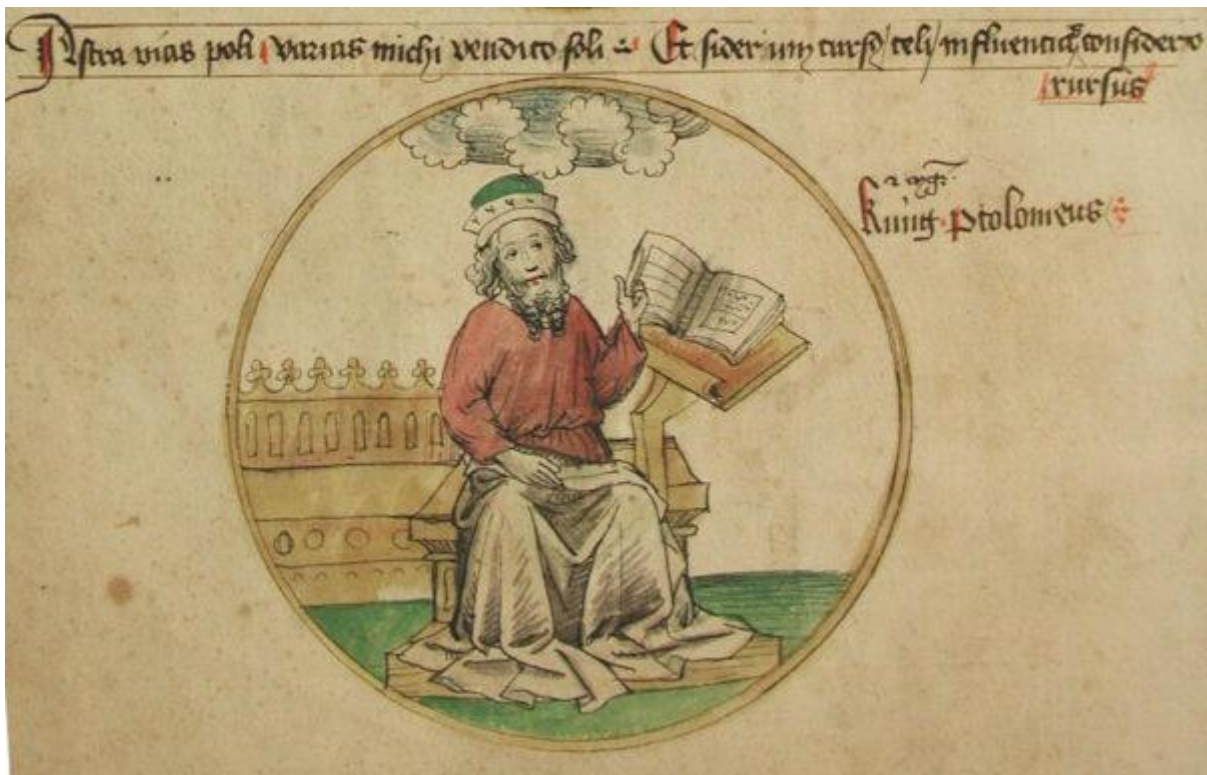 Astra vias poli varias michi vendico soli Et siderum cursus celi influencias considero
rursus
Kunig Ptolomeus